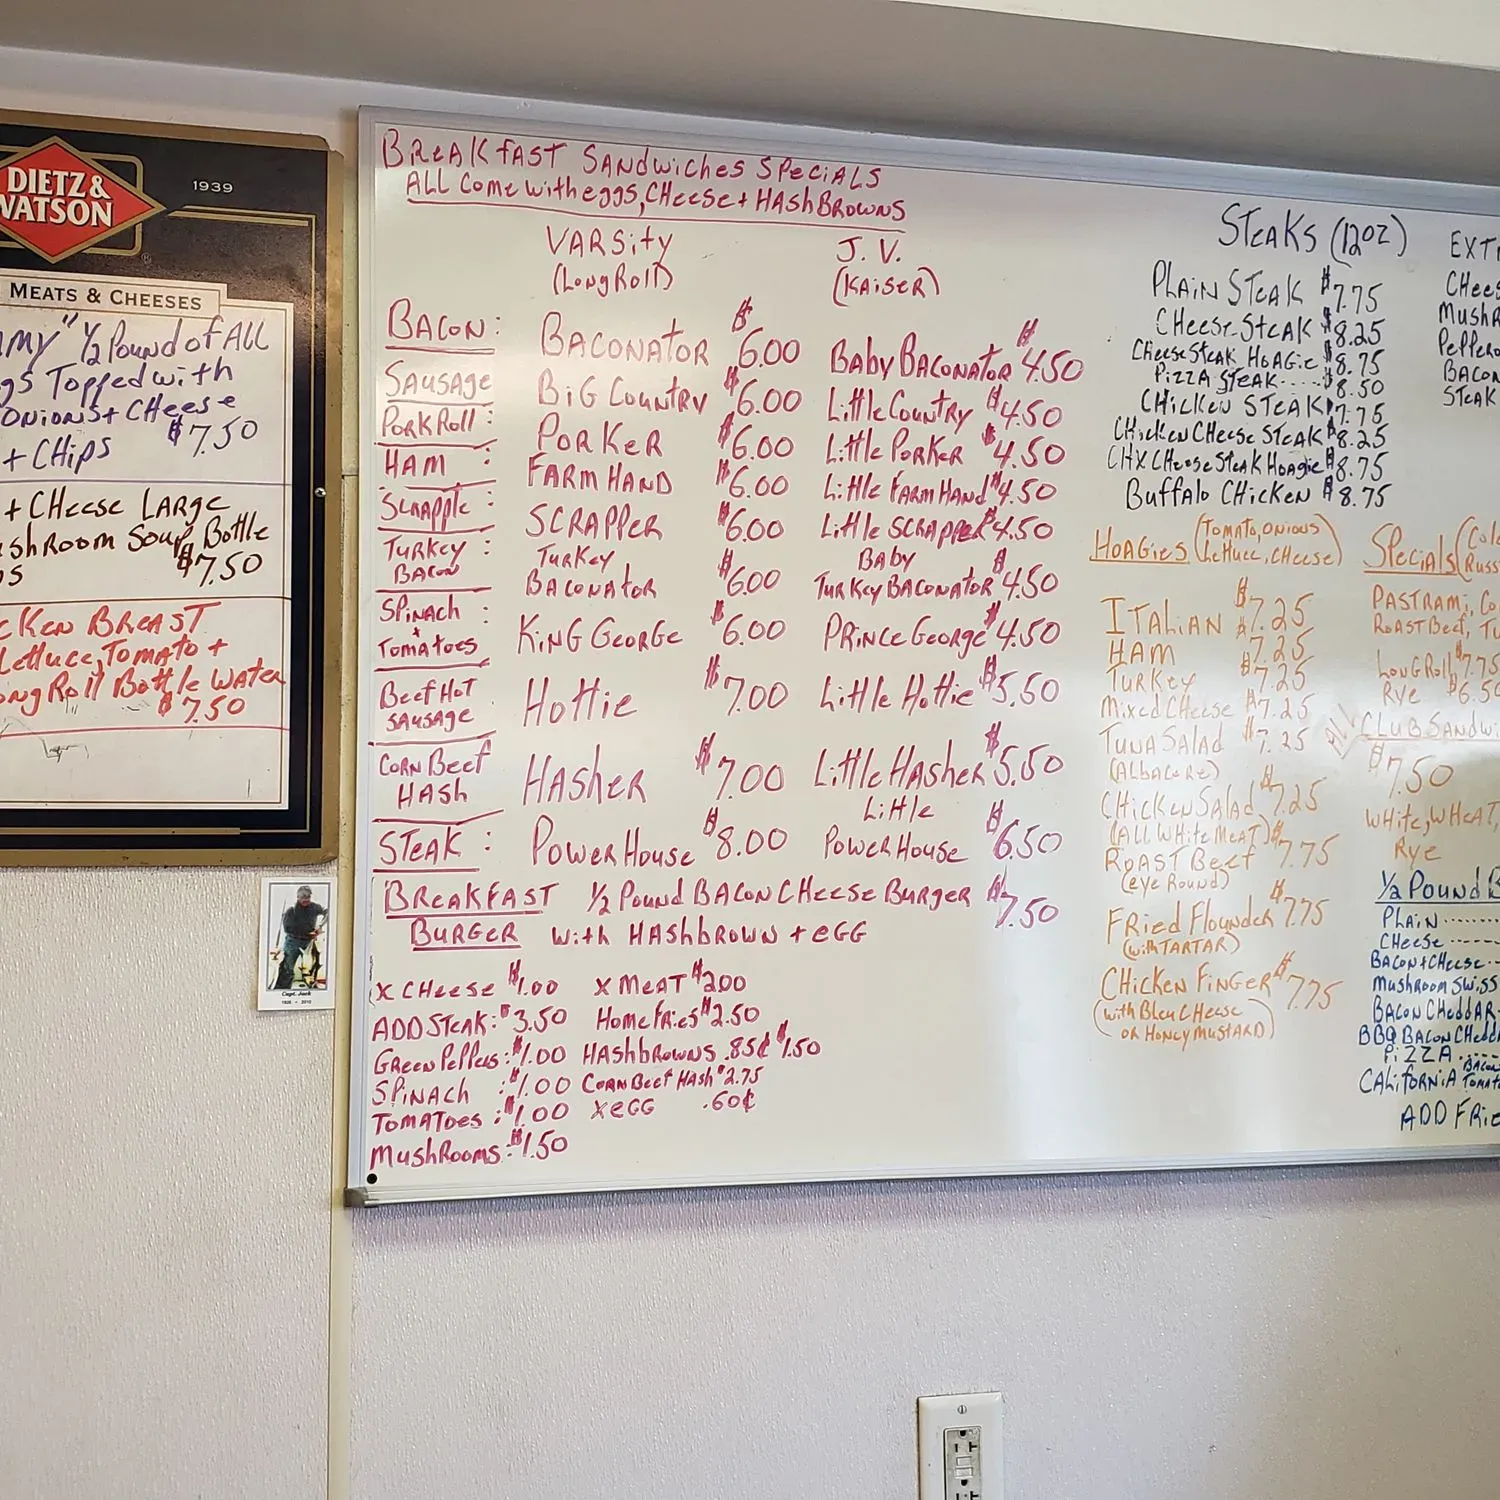 DIETZ &
WATSON
1939
®
MEATS & CHEESES
½ Pound of ALL
Topped with
Onions + CHeese
+ CHips $7.50
+ CHeese LARge
Soup, Bottle
$7.50
BReAST
Lettuce, Tomato +
Roll Bottle WateR
$7.50
Capt. Jack
BReAKfAST SANdwicHes SPeciALS
ALL Come with eggs, CHeese + HAsHBRowNs
VARSity J. V.
(Long Roll) (KAiseR)
BACON: BACONATOR $6.00 BAby BACONATOR $4.50
SAusAge BiG CounTRy $6.00 LittLe CouNTRy $4.50
PoRK Roll: PoRKeR $6.00 LittLe PoRKeR $4.50
HAM: FARM HAND $6.00 LittLe FARM HANd $4.50
ScRApple: SCRAPPeR $6.00 LittLe SCRAPPeR $4.50
TuRKey BACoN: TuRKey BACONATOR $6.00 BABy TuRKey BACONATOR $4.50
SPiNAcH + TomAToes: KiNG GeoRGe $6.00 PRiNce GeoRge $4.50
Beef Hot SAUSAge HoTTie $7.00 LittLe HoTTie $5.50
CoRN Beef HAsH HAsHeR $7.00 LittLe HAsHeR $5.50
STeAK: PoweR House $8.00 LittLe PoweR House $6.50
BReAKfAST ½ Pound BACoN CHeese BuRgeR $7.50
BuRgeR with HAsHbRowN + eGG
X CHeese $1.00 X MeAT $2.00
ADD STeAK: $3.50 Home fRies $2.50
GReeN PePPeRs: $1.00 HAsHbRowNs .85¢ $1.50
SPiNAcH: $1.00 CoRN Beef HAsH $2.75
TomAToes: $1.00 X eGG .60¢
MusHRooms: $1.50
STeAKs (12oz)
PLAiN STeAK $7.75
CHeese STeAK $8.25
CHeese STeAK HoAgie $8.75
PizzA STeAK.....$8.50
CHicKeN STeAK $7.75
CHicKeN CHeese STeAK $8.25
CHX CHeese STeAK HoAgie $8.75
BuffAlo CHicKeN $8.75
CHees
MusHR
PePPeRo
BACoN
STeAK
HoAgies (TomATo, oNioNs
LeTTuce, CHeese)
ITALiAN $7.25
HAM $7.25
TuRKey $7.25
Mixed CHeese $7.25
TuNA SALAd $7.25
(ALbAcoRe)
CHicKeN SALAd $7.25
(ALL WHiTe MeAT)
RoAST Beef $7.75
(eye Round)
FRied FlounDeR $7.75
(with TARTAR)
CHicKeN FiNGeR $7.75
(with Bleu CHeese
oR HoNey MusTARD)
SpeciALs
PASTRAMi, Co
RoAST Beef, Tu
LoNg Roll $7.75
Rye $6.50
ALL CLUB SANdwi
$7.50
WHiTe, WHeAT,
Rye
½ Pound B
PLAiN ........
CHeese ......
BACoN + CHeese..
MusHRoom Swiss
BACoN CHeddAR
BBQ BACoN CHedd
PiZZA ......
CALiFoRNiA BACoN TomATo
ADD FRie